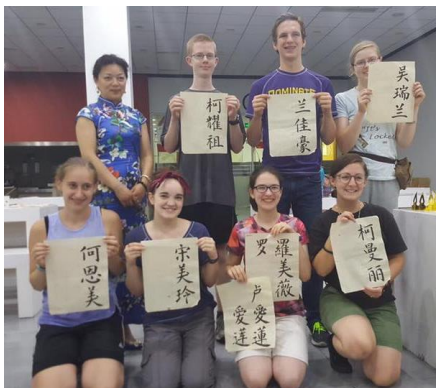 柯耀祖
兰佳豪
吴瑞兰
DOMINATE
何恩美
宋美玲
羅美薇
罗
卢愛蓮
爱莲
柯曼丽